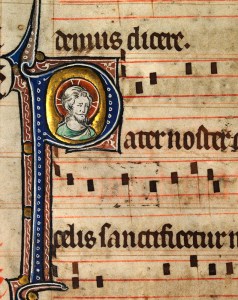 demus dicere.
Pater noster
celis sanctificetur n